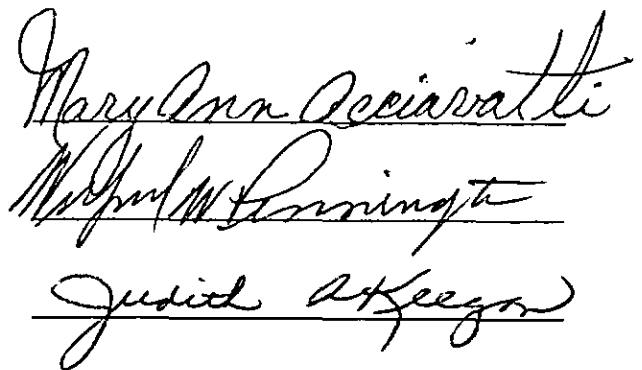 Mary Ann Acciavatti
W Pennington
Judith A Keegan